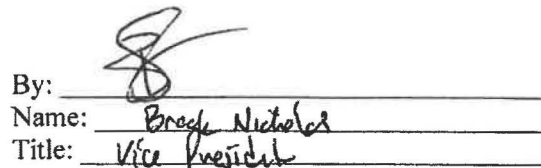 By:
Name: Brock Nicholas
Title: Vice President